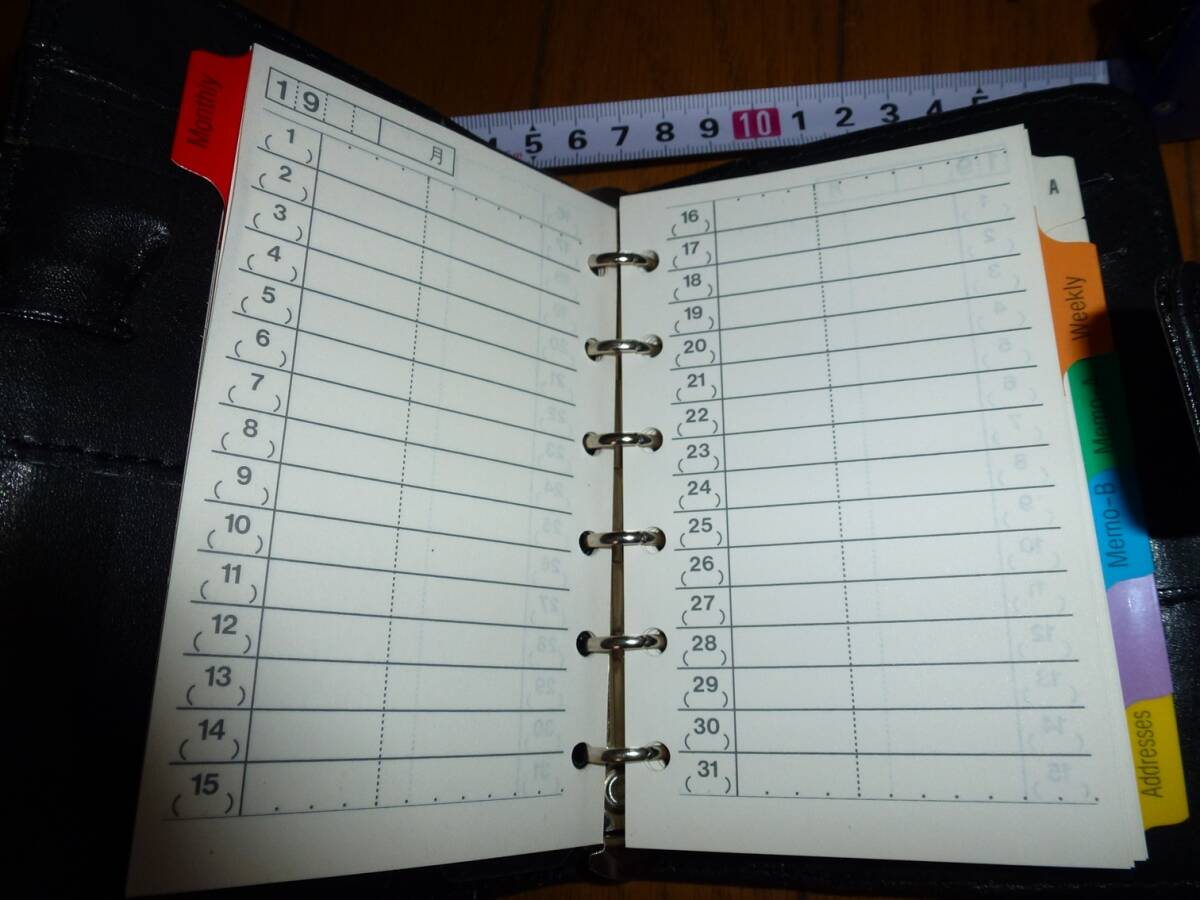 Monthly
19
月
1
( )
2
( )
3
( )
4
( )
5
( )
6
( )
7
( )
8
( )
9
( )
10
( )
11
( )
12
( )
13
( )
14
( )
15
( )
5 6 7 8 9 10 1 2 3 4 5
16
( )
17
( )
18
( )
19
( )
20
( )
21
( )
22
( )
23
( )
24
( )
25
( )
26
( )
27
( )
28
( )
29
( )
30
( )
31
( )
A
Weekly
Memo-A
Memo-B
Addresses